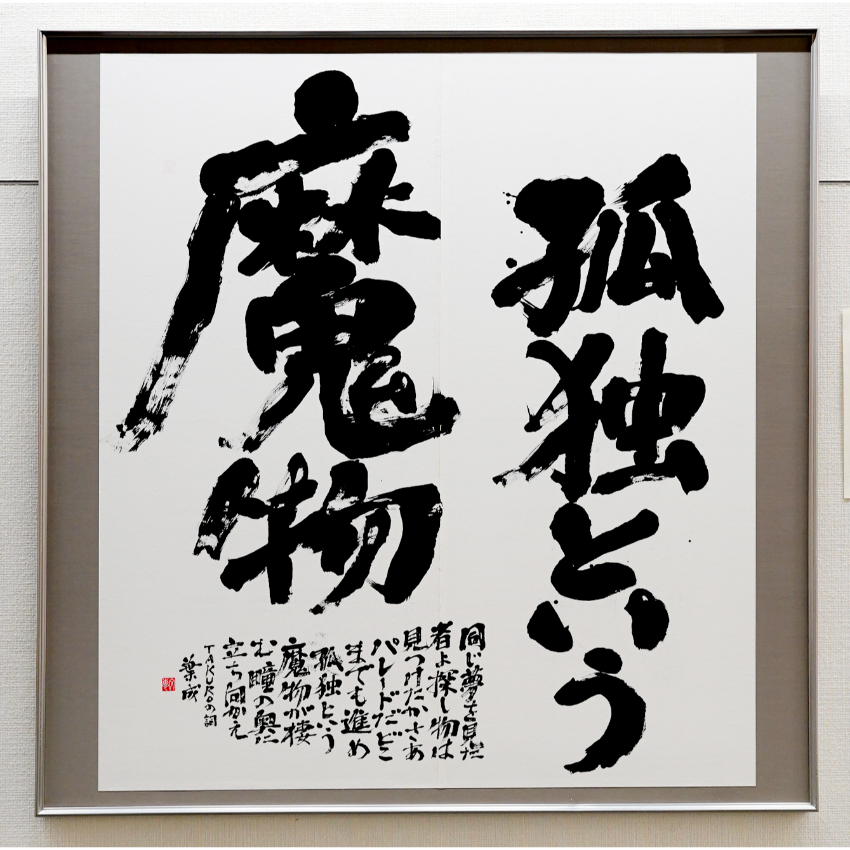 孤独という
魔物
同じ夢を見た
者よ探し物は
見つけたかさあ
パレードだどこ
までも進め
孤独という
魔物が棲
む瞳の奥に
立ち向かえ
TAKUROの詞
葉成